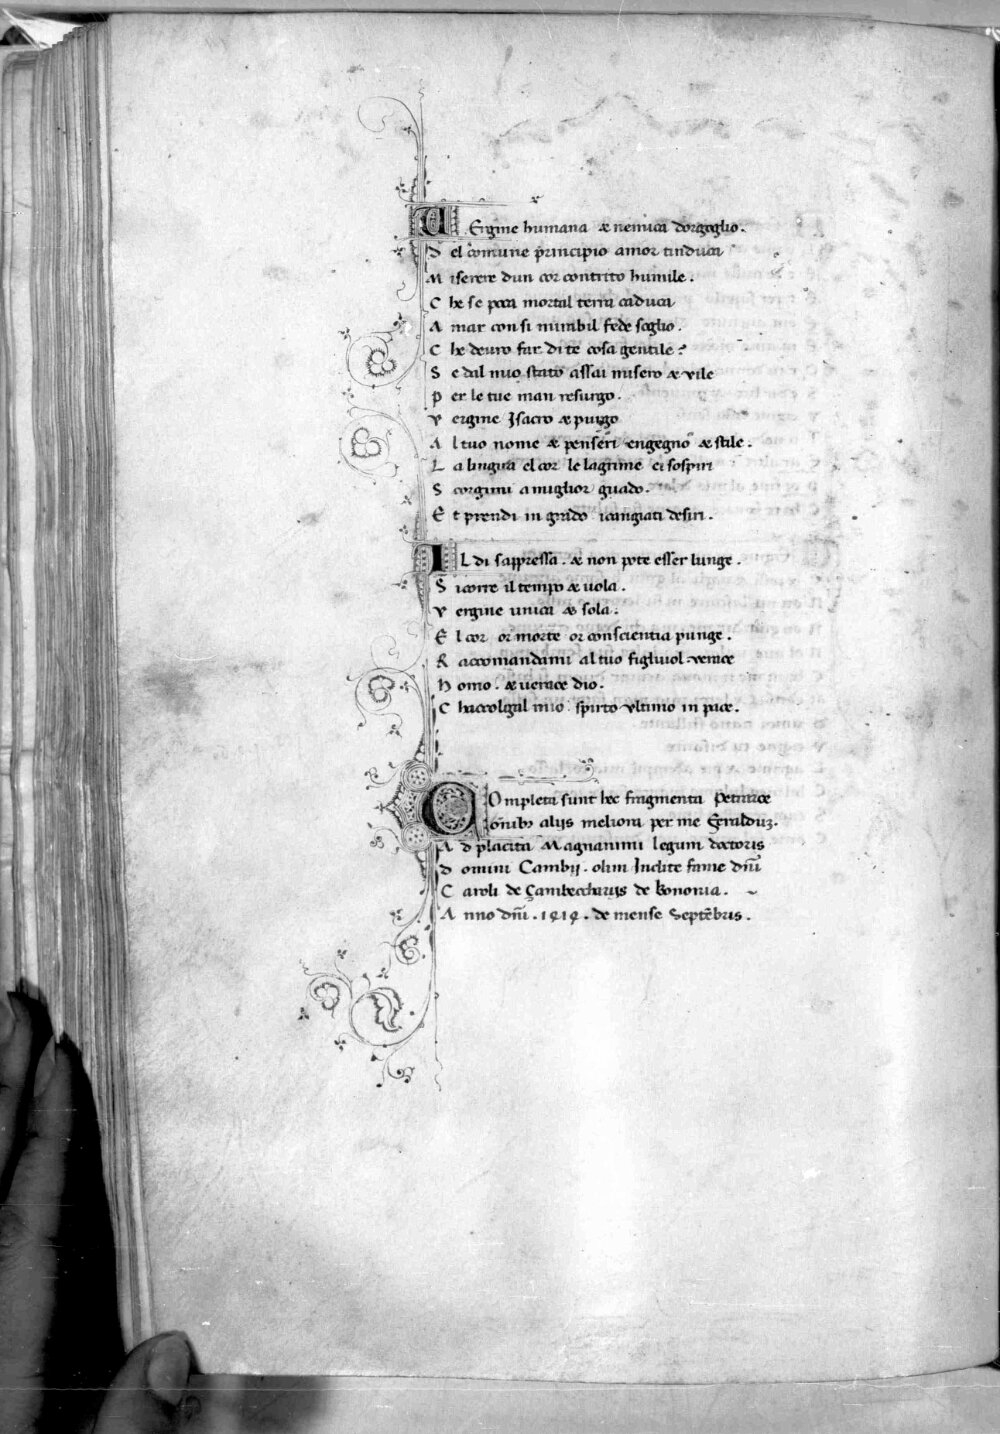 VErgine humana & nemica dorgoglio.
D el comune principio amor tinduca
M iserere dun cor contrito humile.
C he se poca mortal terra caduca
A mar con si mirabil fede soglio.
C he deuro far di te cosa gentile?
S e dal mio stato assai misero & vile
P er le tue man resurgo.
V ergine Isacro & purgo
A l tuo nome & penseri engegno & stile.
L a lingua el cor le lagrime ei sospiri
S corgimi a miglior guado.
E t prendi in grado icangiati desiri.
IL di sappressa. & non pote esser lunge.
S i corre il tempo & uola.
V ergine unica & sola.
E l cor or morte or conscientia punge.
R accomandami al tuo figliuol verace
H omo. & uerace dio.
C haccolgal mio spirto vltimo in pace.
COmpleta sunt hec fragmenta Petrarce
omib3 alijs meliora per me Geralduz.
A d placita Magnanimi legum doctoris
D omini Cambij. olim Inclite fame dñi
C aroli de Çambeccharijs de bononia.
A nno dñi. 1414. de mense Septēbris.